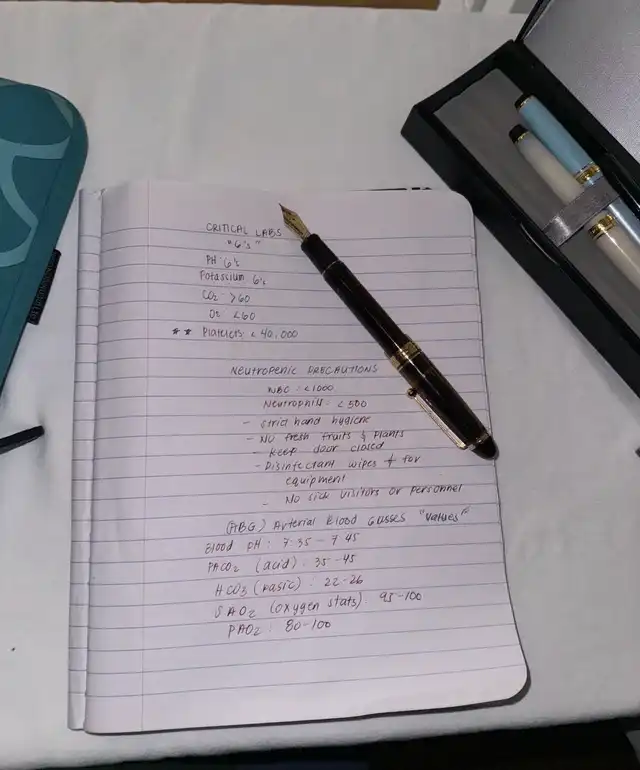 CRITICAL LABS
"6's"
PH: 6's
Potassium 6's
CO2: >60
O2 <60
** Platelets: < 40,000
NEUTROPENIC PRECAUTIONS
WBC: <1000
Neutrophils: < 500
- strict hand hygiene
- NO fresh fruits & plants
- Keep door closed
- Disinfectant wipes + for
equipment
- No sick visitors or personnel
(ABG) Arterial Blood Gusses "values"
Blood pH: 7.35 - 7.45
PACO2 (acid): 35-45
HCO3 (basic): 22-26
SAO2 (oxygen stats): 95-100
PAO2: 80-100